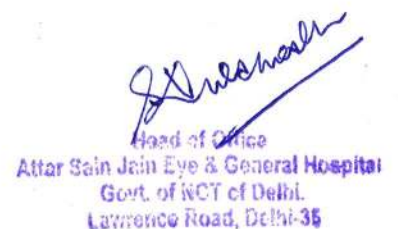 Head of Office
Attar Sain Jain Eye & General Hospital
Govt. of NCT of Delhi.
Lawrence Road, Delhi-35